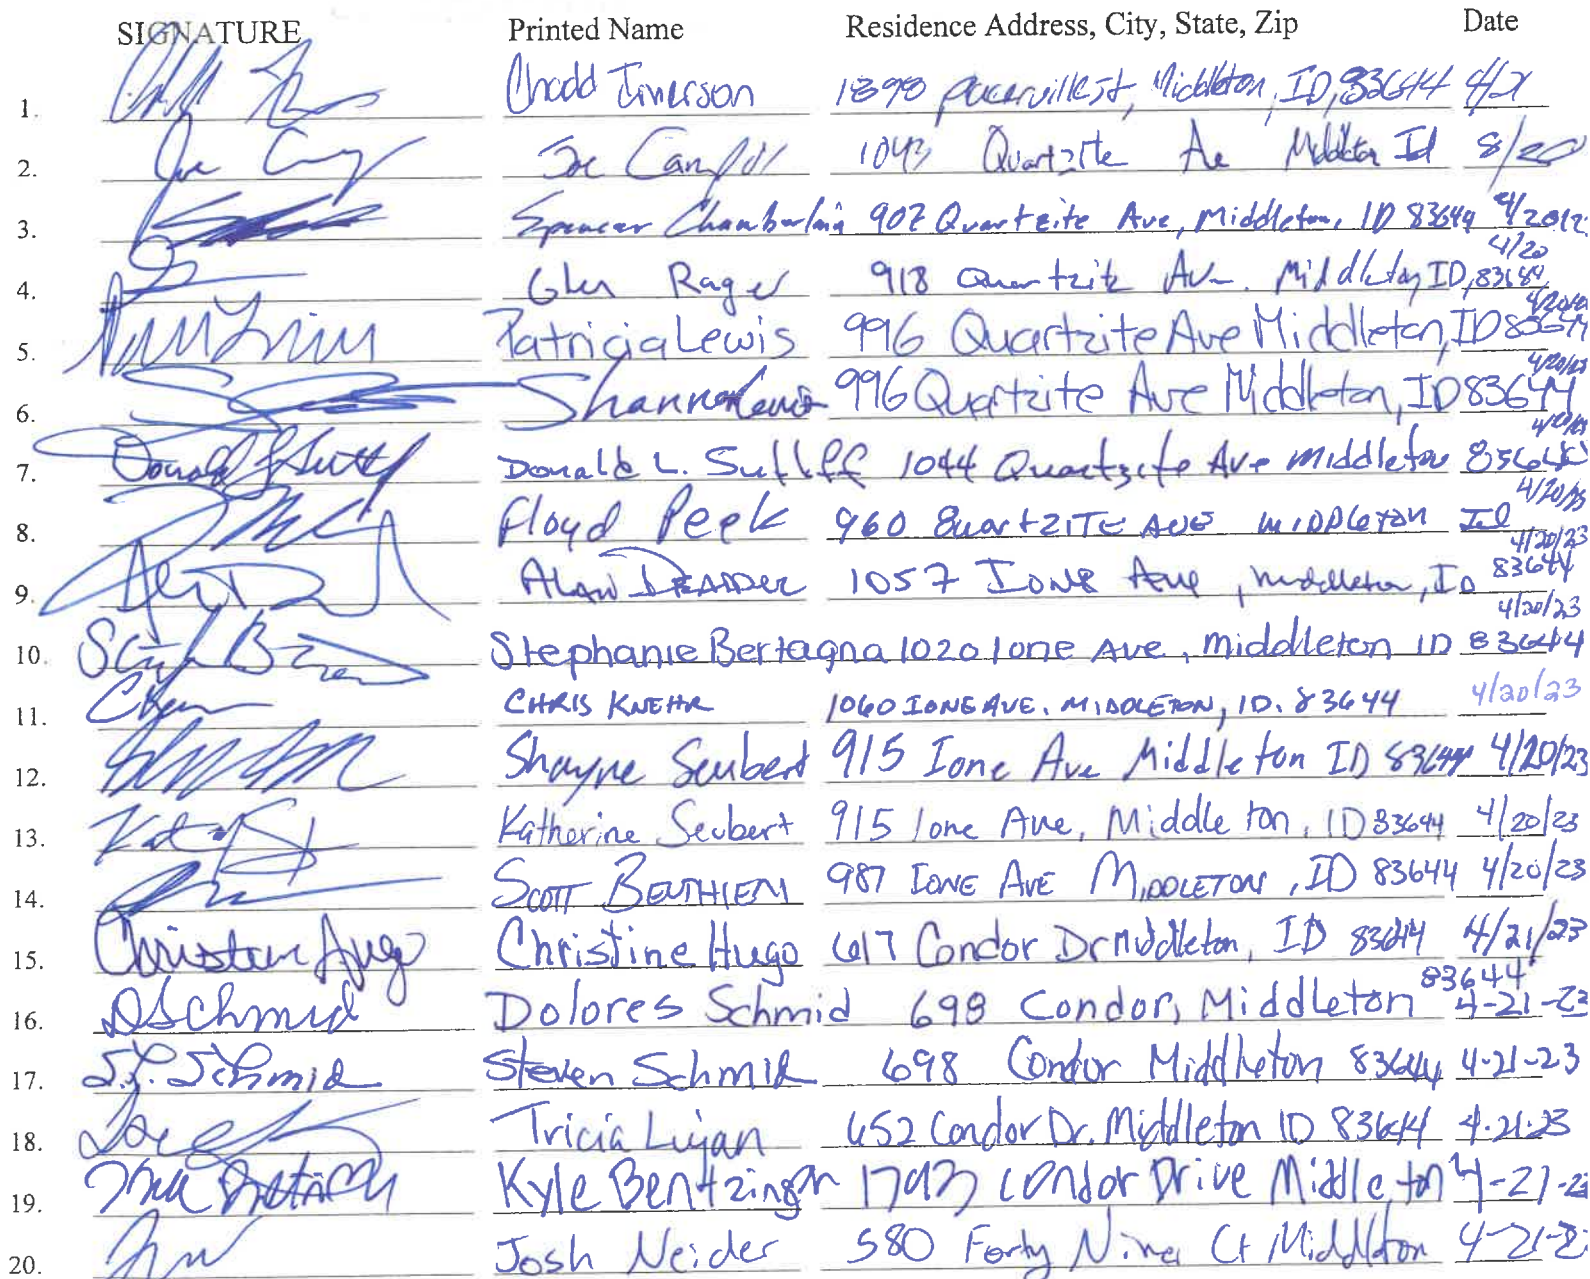 SIGNATURE Printed Name Residence Address, City, State, Zip Date
1. Chadd Imerson 1890 Placerville St, Middleton, ID, 83644 4/21
2. Joe 1043 Quartzite Ave Middleton Id 8/20
3. Spencer Chamberlain 902 Quartzite Ave, Middleton, ID 83644 4/20/2
4/20
4. Glen Rager 918 Quartzite Ave. Middleton, ID, 83644
4/20/23
5. Patricia Lewis 996 Quartzite Ave Middleton, ID 83644
4/20/23
6. Shannon Lewis 996 Quartzite Ave Middleton, ID 83644
4/20/23
7. Donald L. Sutliff 1044 Quartzite Ave Middleton
4/20/23
8. Floyd Peek 960 QuartzITE AVE MIDDleton Id
4/20/23
9. Alan 1057 Ione Ave, Middleton, ID 83644
4/20/23
10. Stephanie Bertagna 1020 Ione Ave, Middleton ID 83644
11. CHRIS KNEHR 1060 IONE AVE. MIDDLETON, ID. 83644 4/20/23
12. Shayne Seubert 915 Ione Ave Middleton ID 83644 4/20/23
13. Katherine Seubert 915 Ione Ave, Middleton, ID 83644 4/20/23
14. SCOTT BEUTHIEN 987 IONE AVE MIDDLETON, ID 83644 4/20/23
15. Christine Hugo Christine Hugo 617 Condor Dr Middleton, ID 83644 4/21/23
83644
16. DSchmid Dolores Schmid 698 Condor, Middleton 4-21-23
17. S.L. Schmid Steven Schmid 698 Condor Middleton 83644 4-21-23
18. Tricia Lujan 652 Condor Dr. Middleton ID 83644 4-21-23
19. Kyle Bentzinger 1793 Condor Drive Middleton 4-21-2
20. Josh Neider 580 Forty Niner Ct Middleton 4-21-2